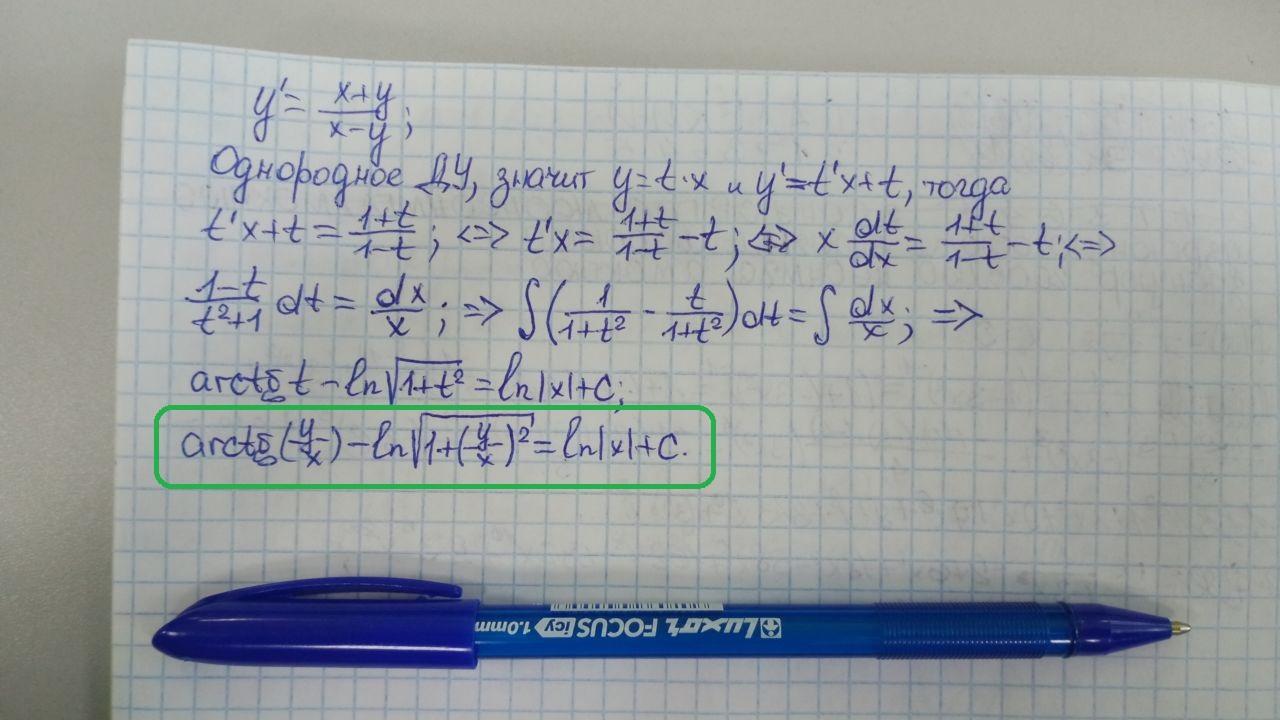 y' = \frac{x+y}{x-y};
Однородное ДУ, значит y=t·x и y'=t'x+t, тогда
t'x+t = \frac{1+t}{1-t}; <=> t'x = \frac{1+t}{1-t} - t; <=> x \frac{dt}{dx} = \frac{1+t}{1-t} - t; <=>
\frac{1-t}{t²+1} dt = \frac{dx}{x}; => ∫(\frac{1}{1+t²} - \frac{t}{1+t²})dt = ∫\frac{dx}{x}; =>
arctg t - ln√(1+t²) = ln|x|+C;
arctg(\frac{y}{x}) - ln√(1+(\frac{y}{x})²) = ln|x|+C.
Luxor FOCUS icy 1.0mm